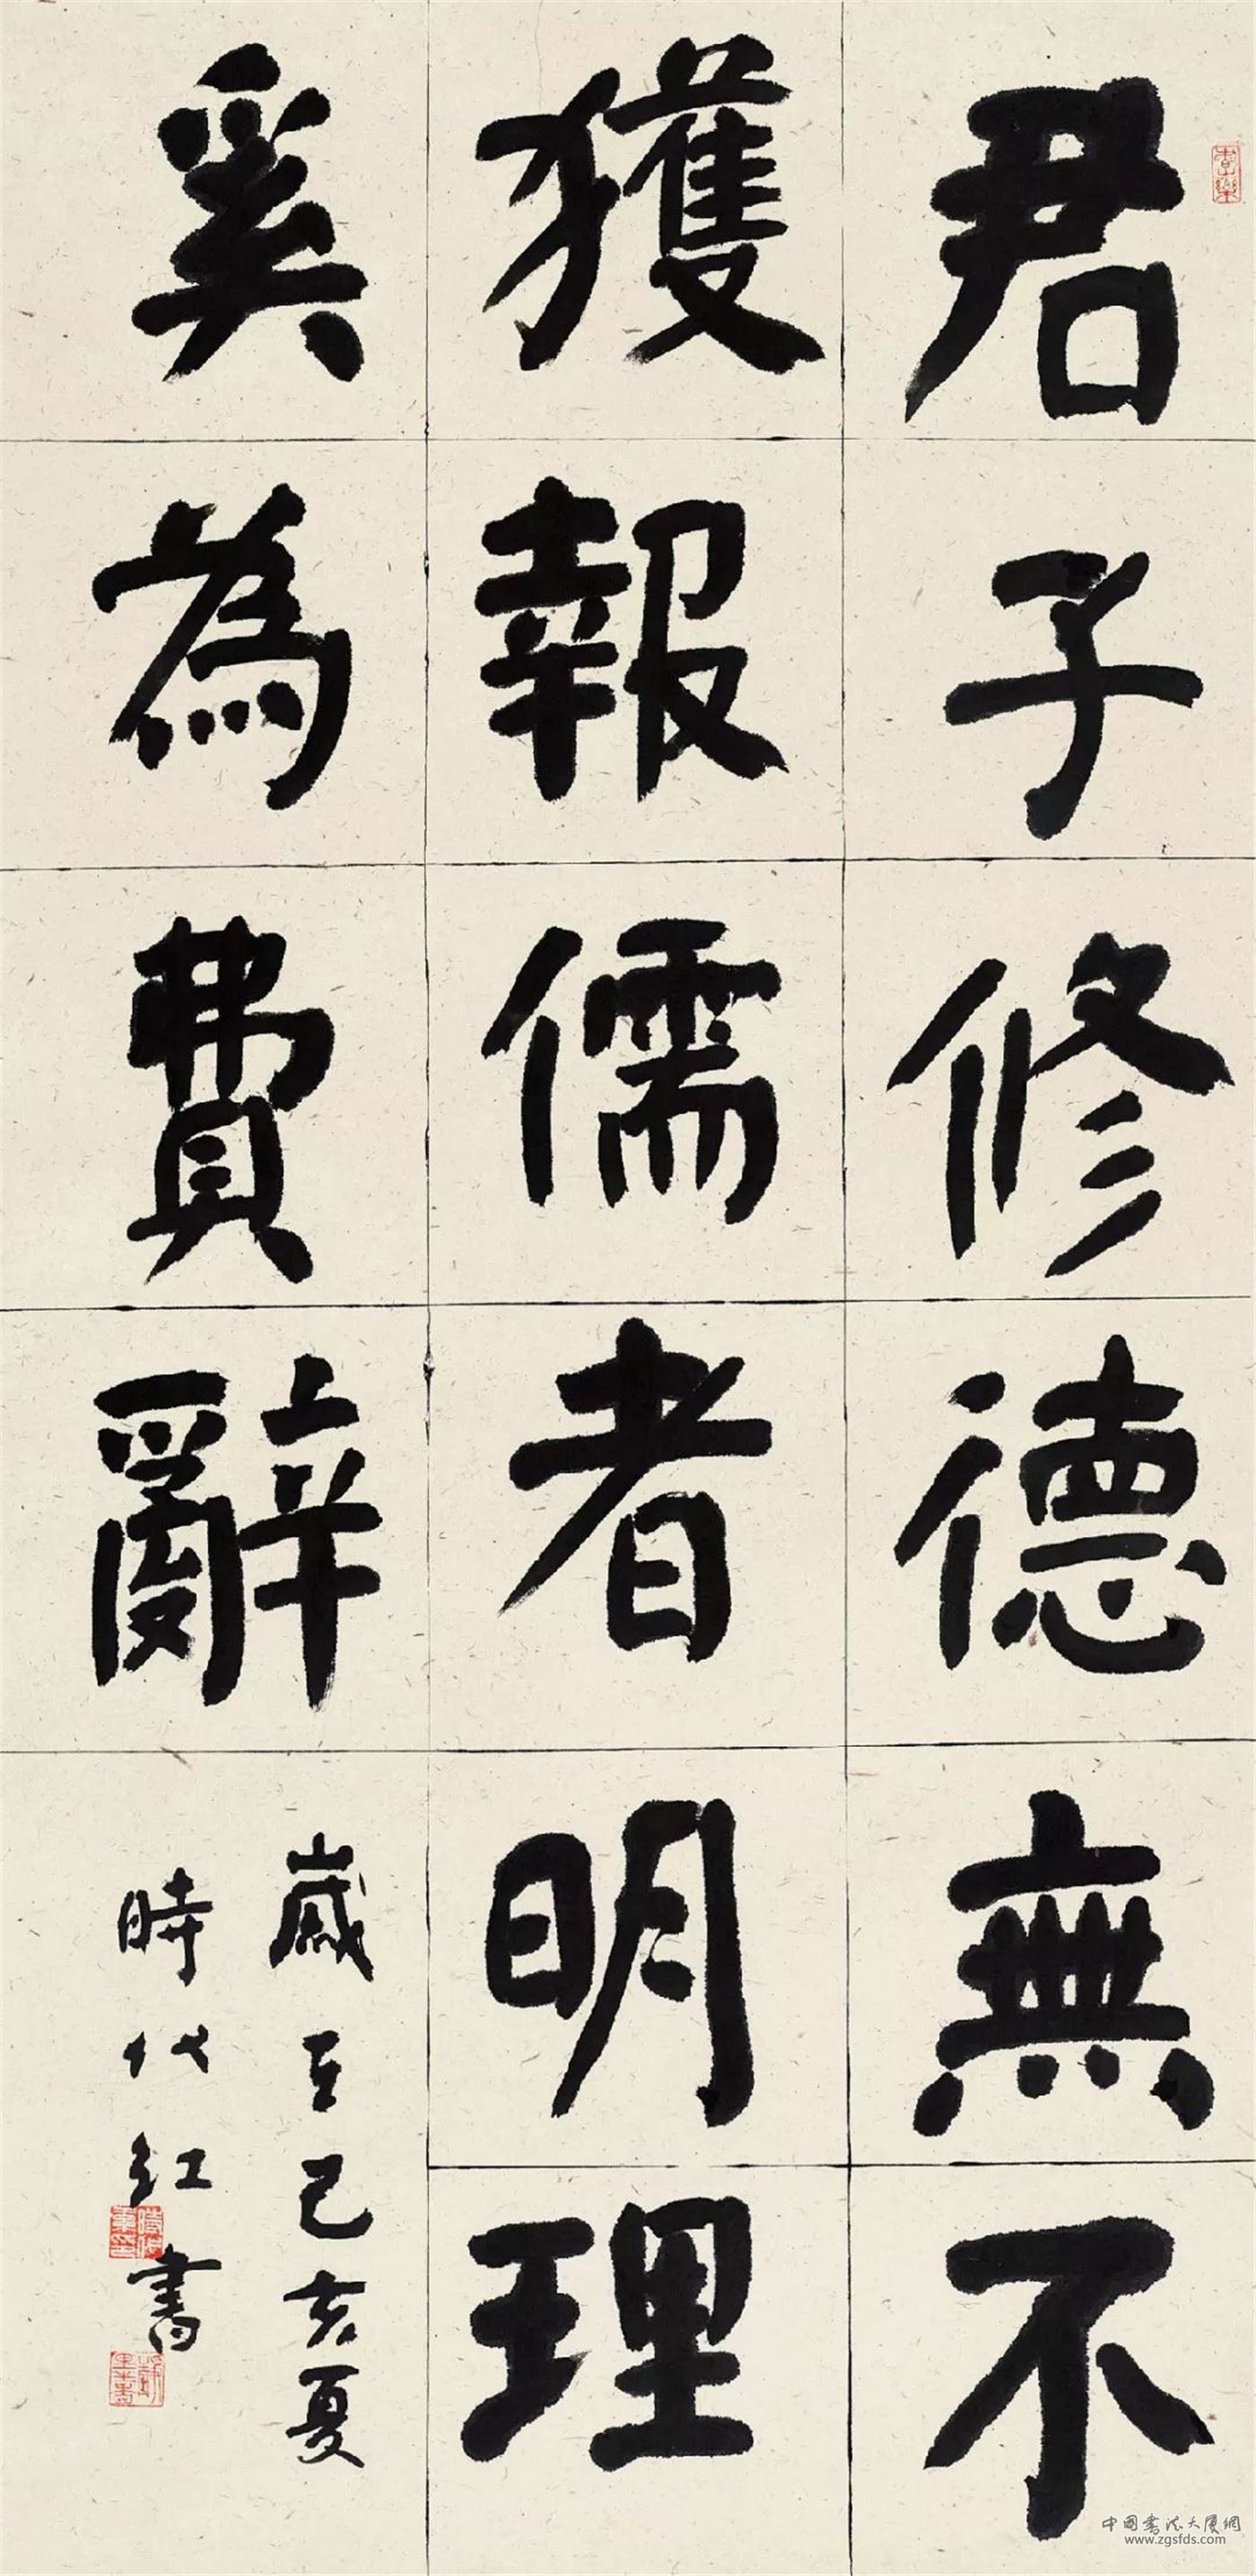 君子修德無不
獲報儒者明理
奚為費辭
歲在己亥夏
時代紅書
中國書法大廈網
www.zgsfds.com